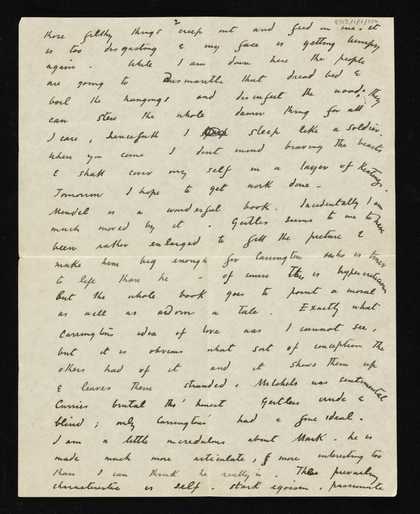 2
those filthy things creep out and feed on me. it
is too disgusting & my face is getting bumpy
again. While I am down here the people
are going to Dismantle that dread bed &
boil the hangings and disinfect the wood; they
can stew the whole damn thing for all
I care, henceforth I sleep like a soldier.
When you come I don't mind braving the beasts
& shall cover my self in a layer of Keatings.
Tomorrow I hope to get work done -
Mendel is a wonderful book. Incidentally I am
much moved by it. Gertler seems to me to have
been rather enlarged to fill the picture &
make him big enough for Carrington who is truer
to life than he - of course this is hypercriticism
But the whole book goes to point a moral
as well as adorn a tale. Exactly what
Carrington's idea of love was I cannot see,
but it is obvious what sort of conception the
others had of it and it shows them up
& leaves them stranded. Mitchell was sentimental
Currie brutal tho' honest Gertler crude &
blind; only Carrington had a fine ideal.
I am a little incredulous about Mark. he is
made much more articulate, & more interesting too
than I can think he really is. The prevailing
characteristic is self. stark egoism, passionate